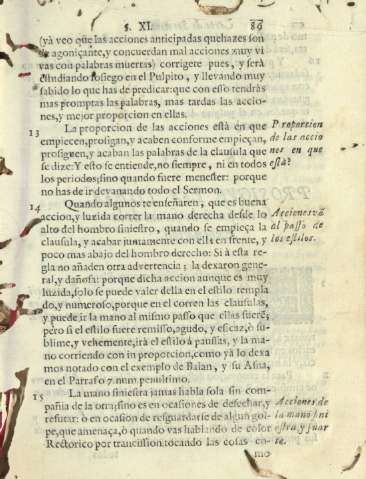 §. XI.
89
(yà veo que las acciones anticipadas quehazes son
de agoniçante, y concuerdan mal acciones muy vi
vas con palabras muertas) corrigete pues, y serà
estudiando sosiego en el Pulpito, y llevando muy
sabido lo que has de predicar: que con esso tendràs
mas promptas las palabras, mas tardas las accio-
nes, y mejor proporcion en ellas.
13
La proporcion de las acciones està en que
empiecen, prosigan, y acaben conforme empieçan,
prosiguen, y acaban las palabras de la clausula que
se dize: Y esto se entiende, no siempre, ni en todos
los periodos, sino quando fuere menester: porque
no has de ir devanando todo el Sermon.
Proporcion
de las accio
nes en que
està?
14
Quando algunos te enseñaren, que es buena
accion, y luzida correr la mano derecha desde lo
alto del hombro siniestro, quando se empieça la
clausula, y acabar juntamente con ella en frente, y
poco mas abajo del hombro derecho: Si à esta re-
gla no añaden otra advertencia; la dexaron gene-
ral, y dañosa: porque dicha accion aunque es muy
luzida, solo se puede valer della en el estilo templa
do, y numeroso, porque en el corren las clausulas,
y puede ir la mano al mismo passo que ellas suerẽ;
pero si el estilo fuere remisso, agudo, y eficaz, ò su-
blime, y vehemente, irà el estilo à pausas, y la ma-
no corriendo con improporcion, como yà lo dexa
mos notado con el exemplo de Balan, y su Asna,
en el Parrafo 7. num. penultimo.
Acciones vã
al passo de
los estilos.
15
La mano siniestra jamas habla sola sin com-
pañia de la otra, sino en ocasiones de desechar, y
refutar: ò en ocasion de resguardarse de algun gol-
pe, que amenaça, ò quando vas hablando de color
Rectorico por trancission, tocando las cosas co-
mo
Acciones de
la mano sini
estra, y juar
te.